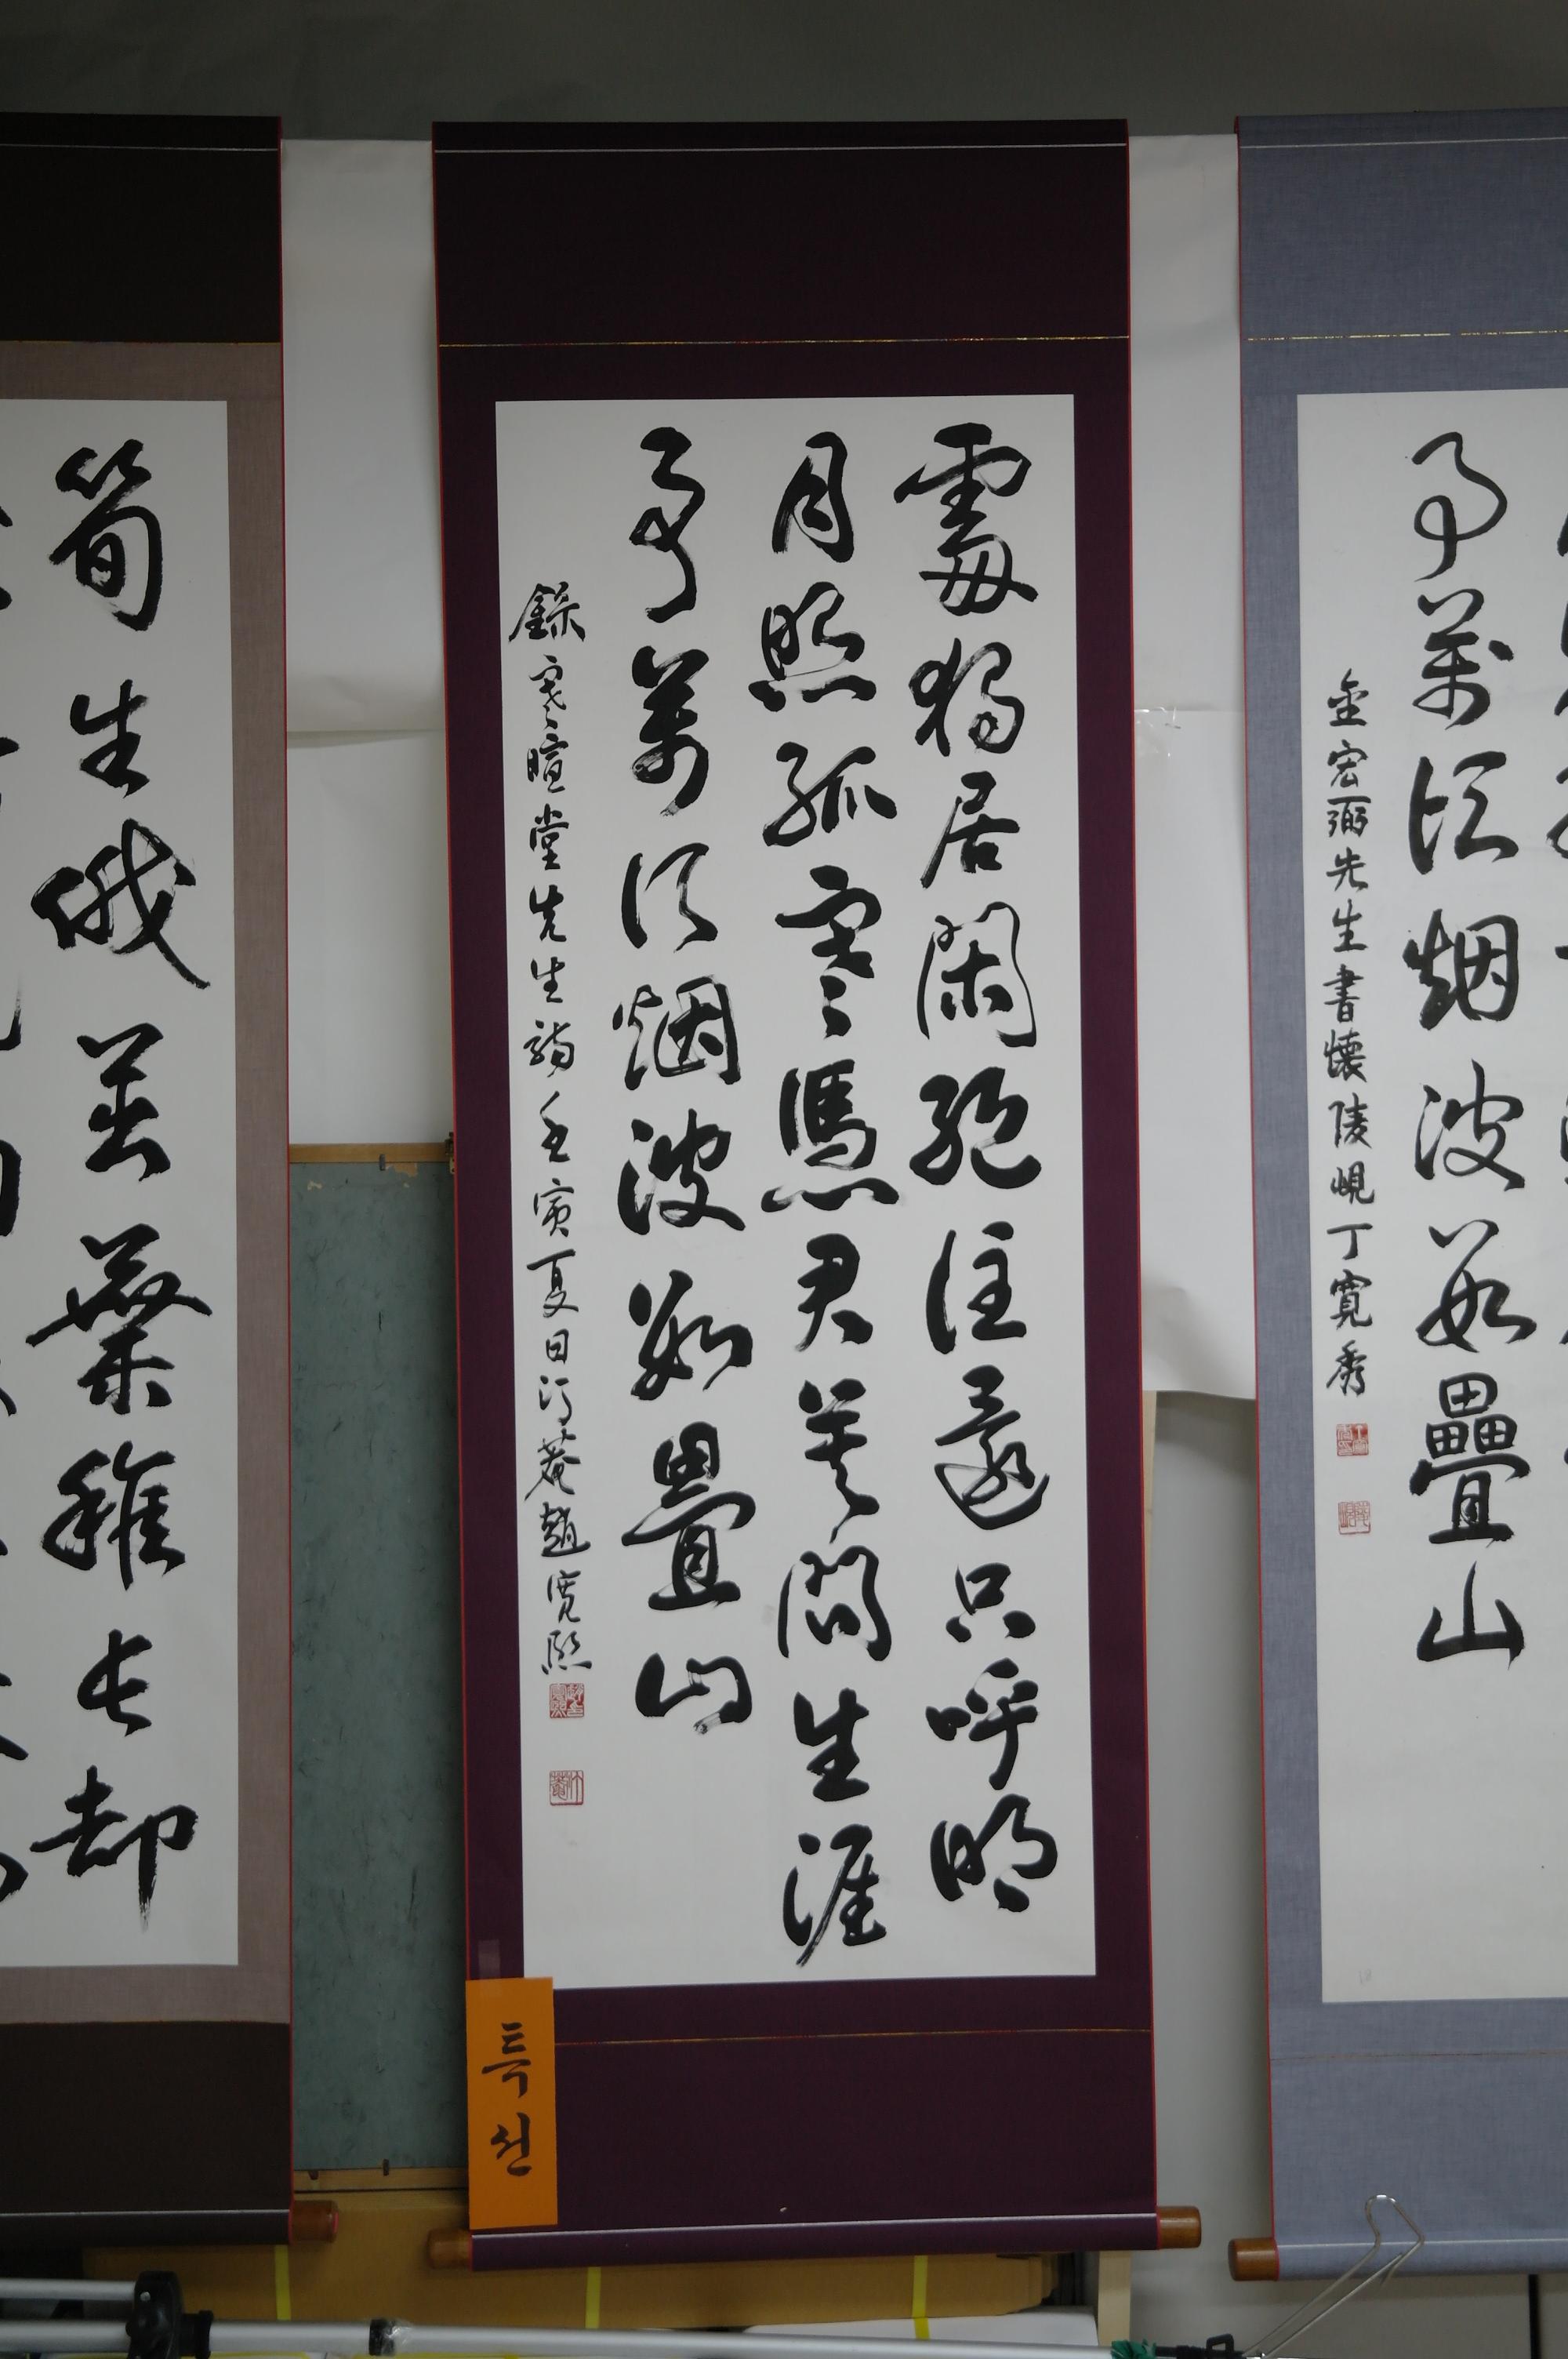 事萬頃烟波數疊山
金宏弼先生書懷陵峴丁寬秀
處獨居閑絶往還只呼明
月照孤寒憑君莫問生涯
事萬頃烟波數疊山
錄寒暄堂先生詩壬寅夏日汀菴趙寬熙
특선
筍生俄茁葉稚長却